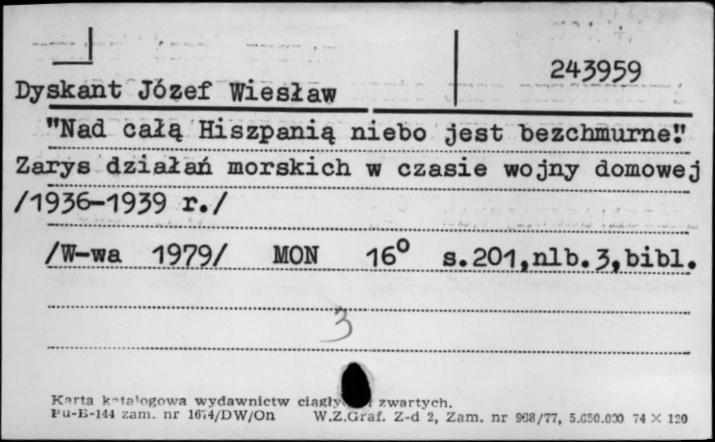 243959
Dyskant Józef Wiesław
"Nad całą Hiszpanią niebo jest bezchmurne."
Zarys działań morskich w czasie wojny domowej
/1936-1939 r./
/W-wa 1979/ MON 16° s.201,nlb.3,bibl.
3
Karta katalogowa wydawnictw ciągły i zwartych.
Pu-E-144 zam. nr 1674/DW/On W.Z.Graf. Z-d 2, Zam. nr 968/77, 5.650.000 74 × 120